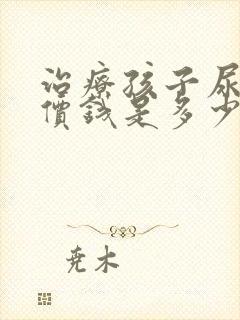 治療孩子尿
價錢是多少
尭木